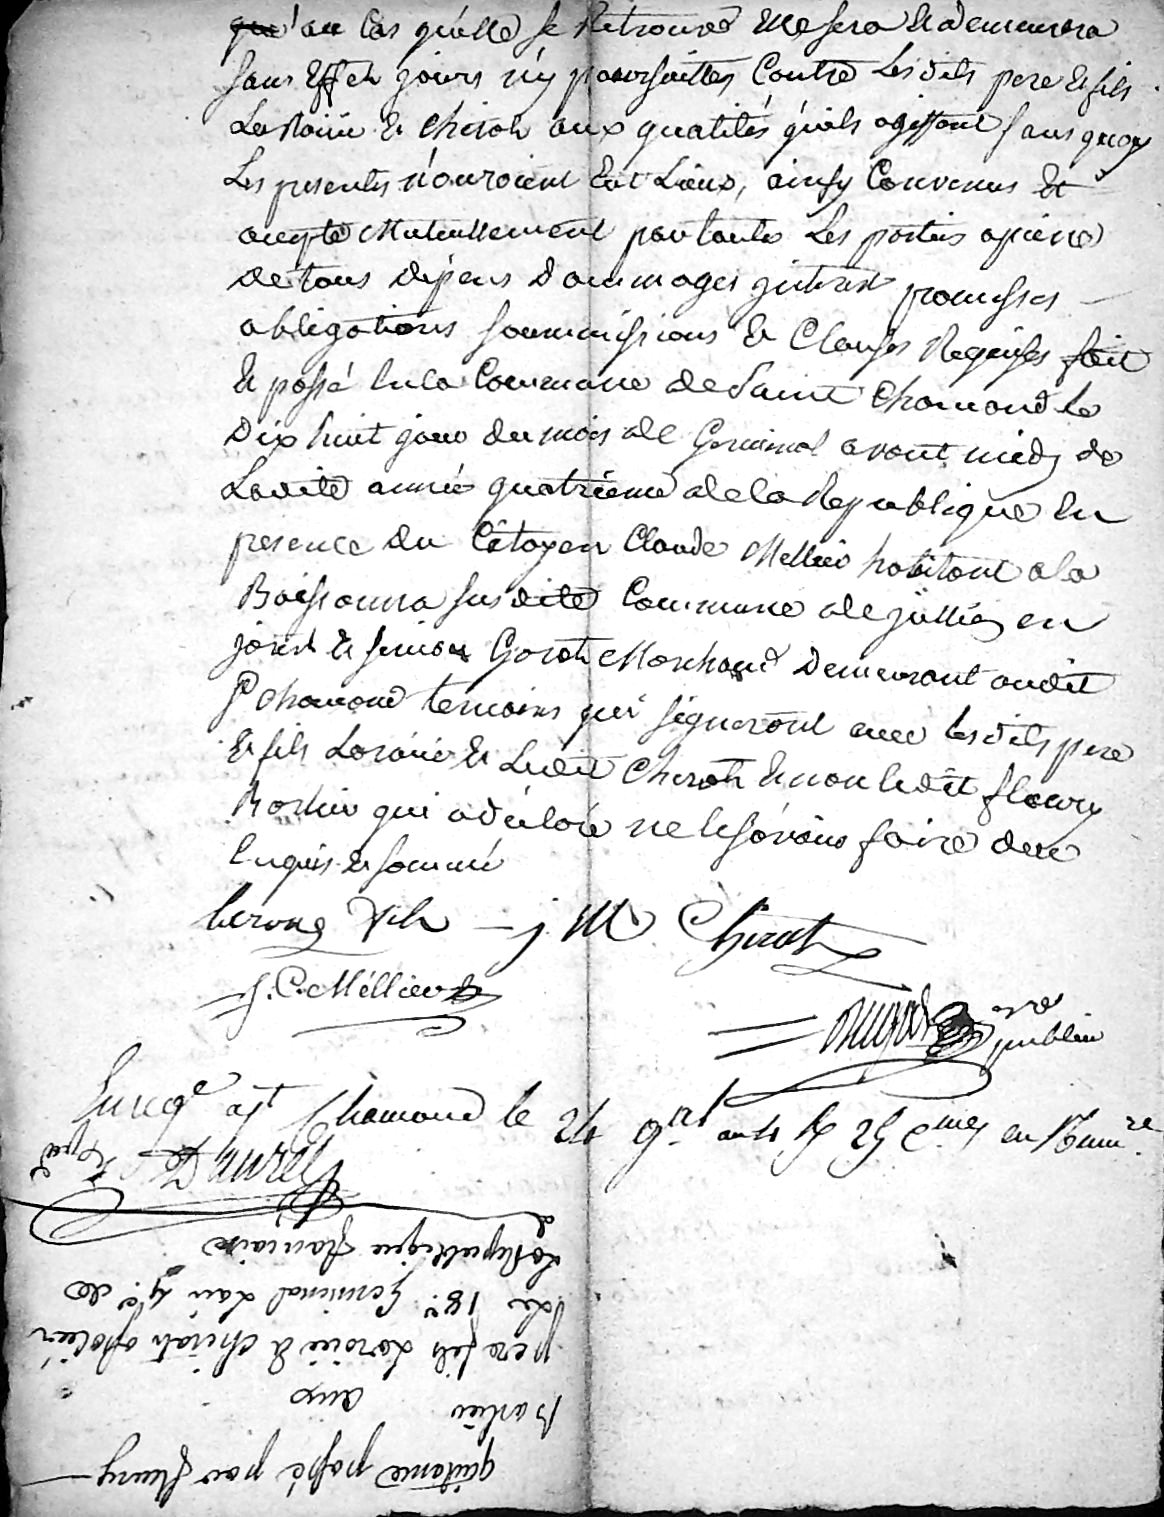 qu'au cas qu'elle se Retrouve elle sera & demeurera
sans Effet jours n'y poursuittes Contre Lesdits pere & fils
& Chirat aux qualités qu'ils agissent sans quoy
Les presentes n'auroient Eut Lieux, ainsy Convenus Et
accepté Mutuellement par toutes Les parties apeine
de tous dépens Dommages interest promesses
obligations soummissions & Clauses Requises fait
& passé en la Commune de Saint Chamond le
Dix huit jour du mois de Germinal avant midy de
Laditte année quatrieme de la Republique En
presence du Citoyen Claude Mellier habitant a la
susditte Commune de jullien en
jarest & simon Marchand Demeurant audit
St Chamond temoins qui signeront avec lesdits pere
& fils & Ledit Chirat & non ledit fleury
qui a déclaré ne le sçavoir faire de ce
Enquis & sommé
fils j M Chirat
J. C. Mellier
public
Enregé a St Chamond le 24 gnal an 4 R 25 Cmes en Numre
quitance passé par fleury
aux
pere fils & chirat
Le 18e Germinal L'an 4e de
La Republique francaise